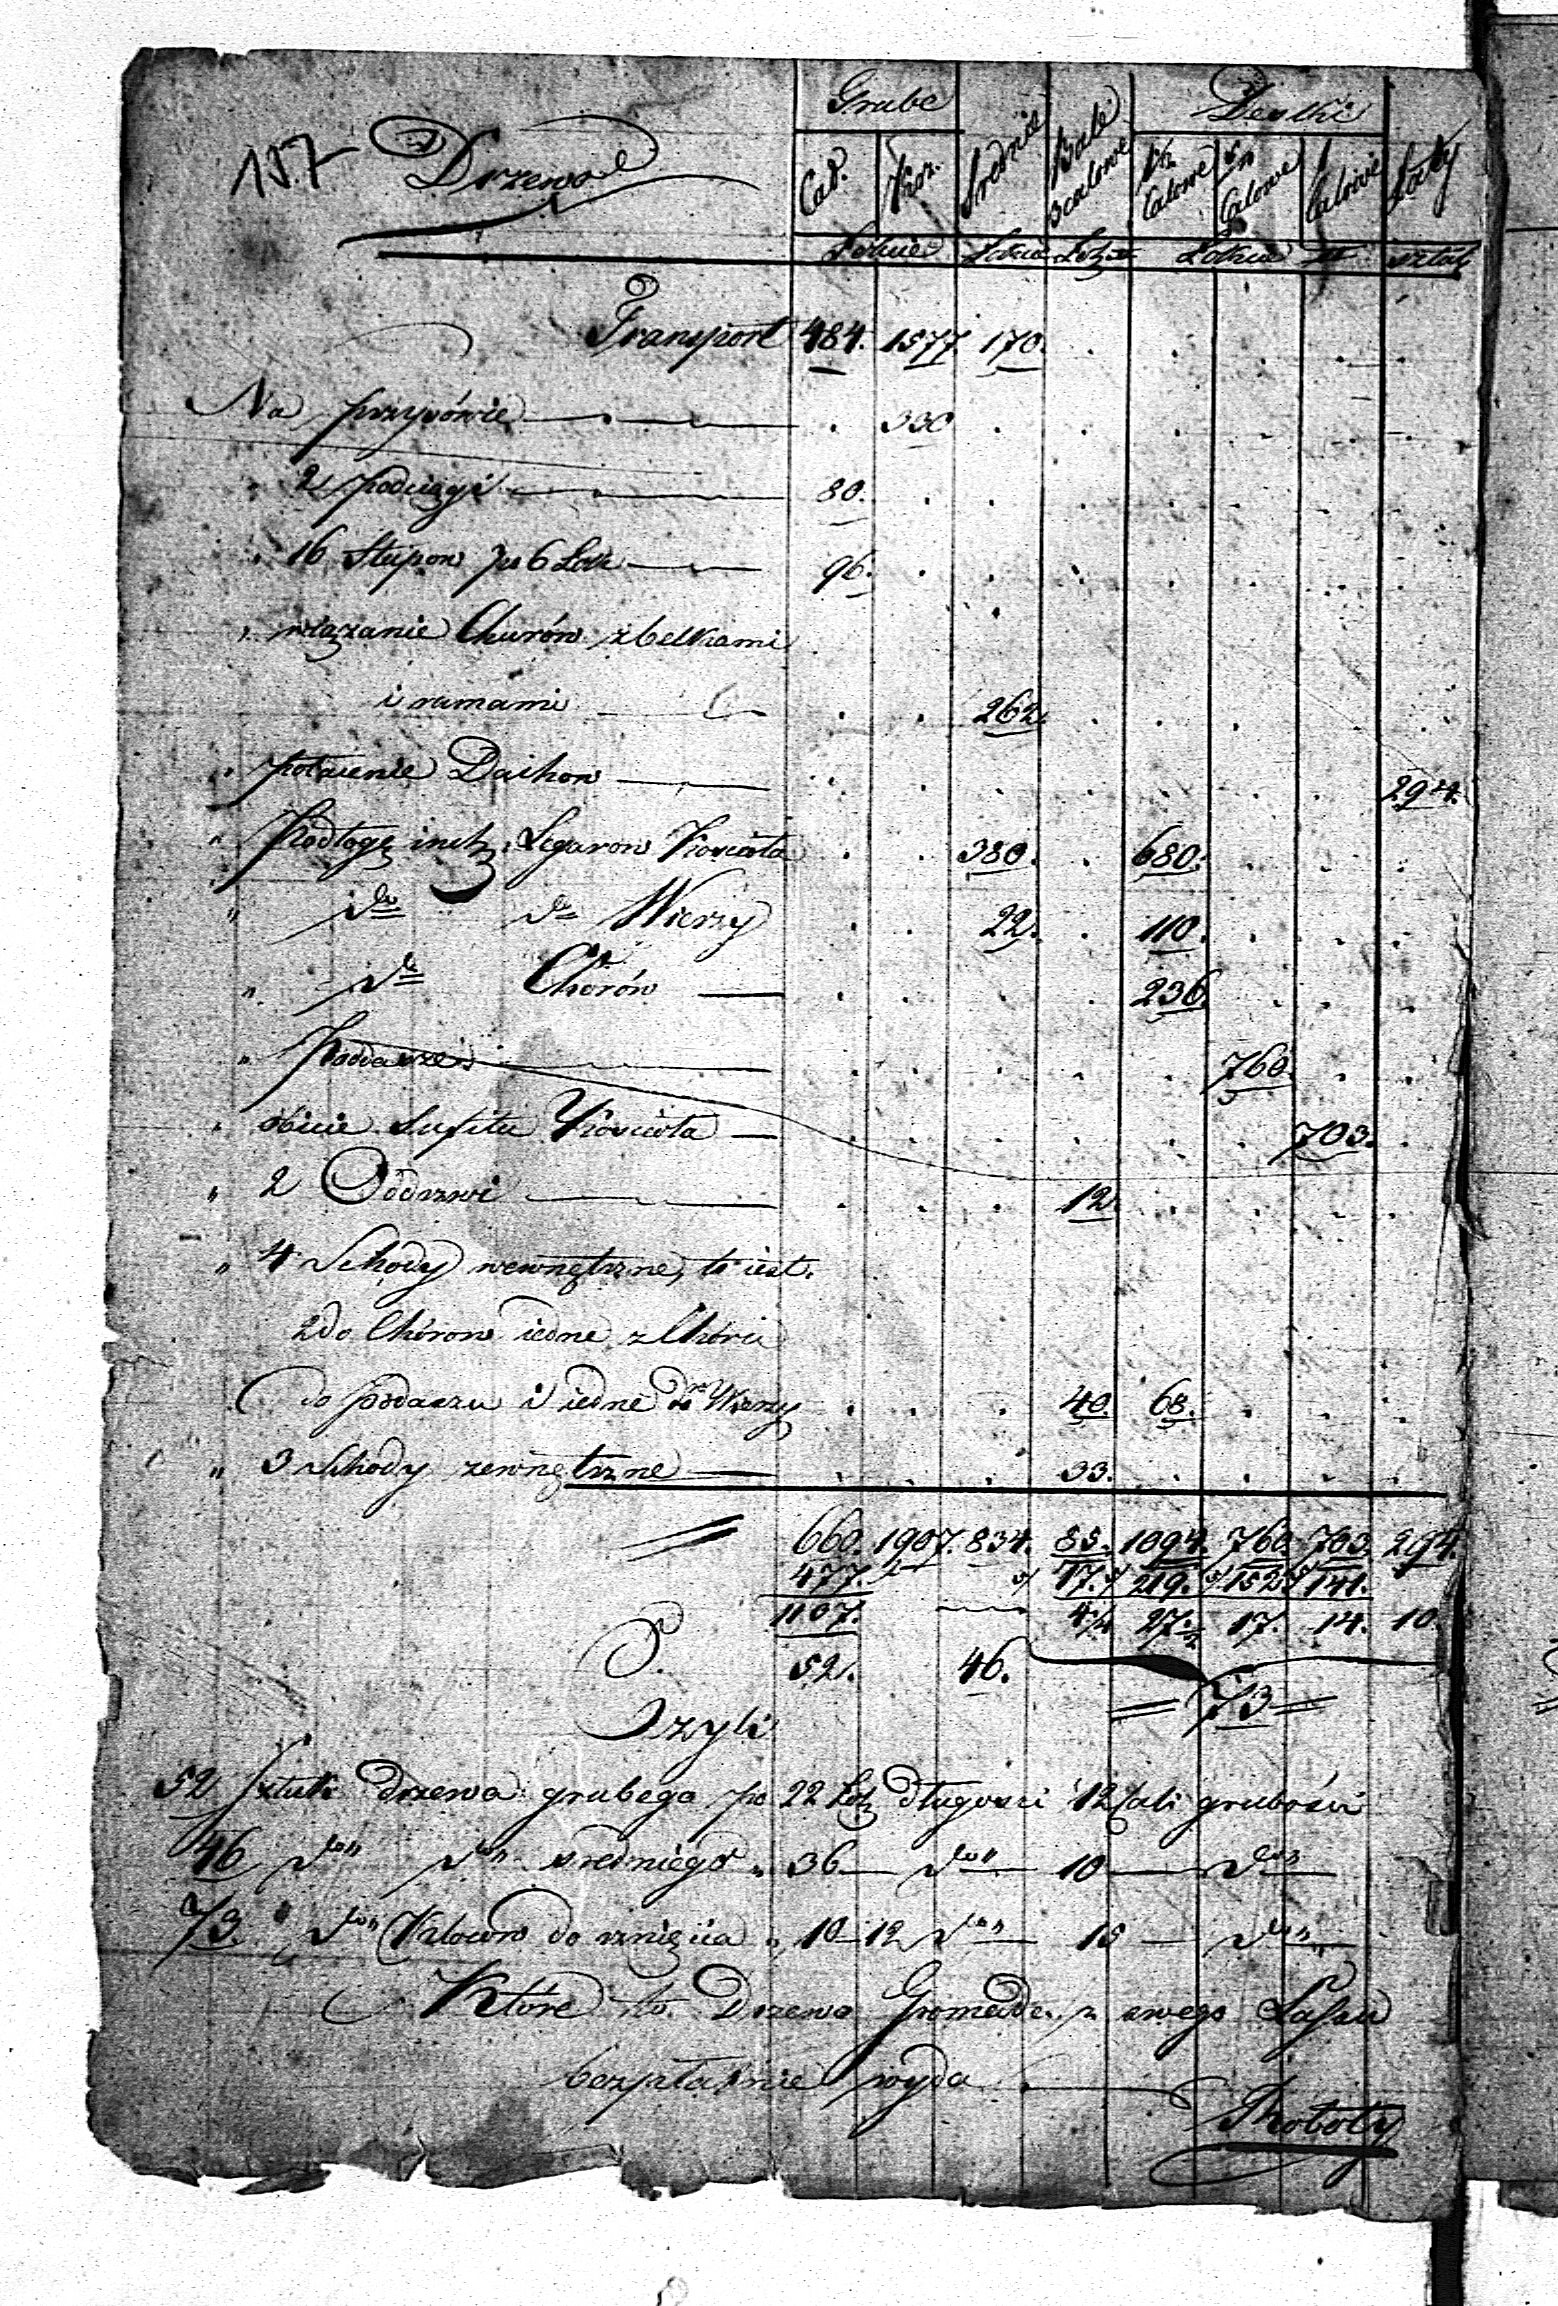 Grube Deski
157 Drzewo Cał. Kroz. Srednie Bale 3calowe 1½ Calowe 5/4 Calowe 1 Calowe Łaty
Łokcie Łokcie Łok: Łokcie sztuk
Transport 484. 1577. 170.
Na przypównie 330
" 2 podciągi 80.
" 16 Słupow po 6 Łok 96.
" wiązanie Churów z belkami
i ramami 262.
" połacenie Dachow 294.
" Podłogę incl: Legarow Kosciola 380. 680.
" do do Wierzy 22. 110.
" do Chorów 236.
" Poddasze 760.
" obicie Sufitu Kosciola 703.
" 2 Oddrzwi 12.
" 4 Schody wewnętrzne, to iest.
2 do Chórow iedne z Chóru
do poddaszu i iedne do Wierzy 40. 68.
" 3 Schody zewnętrzne 33.
660. 1907. 834. 85. 1094. 760. 703. 294.
477. 17. 219. 152. 141.
1107. 4¼ 27.½ 17. 14. 10
52. 46.
73
Czyli
52 Sztuk drzewa grubego po 22 Łok długosci 12 Cali grubości
46 do" do" sredniego " 36 do" 10 do"
73. do" Klocow do rznięcia " 10-12 do" 15 do"
Które to Drzewo Gromada z swego Lassu
bezpłatnie wyda
Roboty